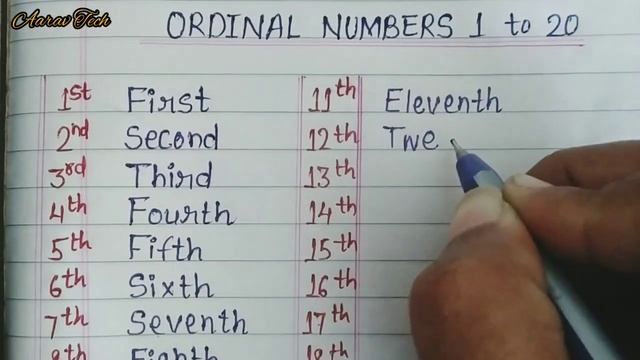 Aarav Tech
ORDINAL NUMBERS 1 to 20
1st First 11th Eleventh
2nd Second 12th Twe
3rd Third 13th
4th Fourth 14th
5th Fifth 15th
6th Sixth 16th
7th Seventh 17th
8th Eighth 18th